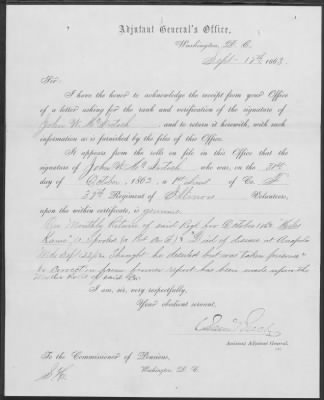 Adjutant General's Office,
Washington, D. C.
Sept 18th, 1863.
Sir:
I have the honor to acknowledge the receipt from your Office
of a letter asking for the rank and verification of the signature of
John W. McIntosh, and to return it herewith, with such
information as is furnished by the files of this Office.
It appears from the rolls on file in this Office that the
signature of John W. McIntosh who was, on the 31st
day of October, 1862, a 1st Lieut of Co. F
38th Regiment of Illinois Volunteers,
upon the within certificate, is genuine.
On Monthly Return of said Regt for October 1862
Kane is reported "Died of disease at
Md. Sept thought he deserted but was taken prisoner"
no correction from former report has been made upon the
Muster Rolls of said Co.
I am, sir, very respectfully,
Your obedient servant,
Assistant Adjutant General.
To the Commissioner of Pensions,
Washington, D. C.